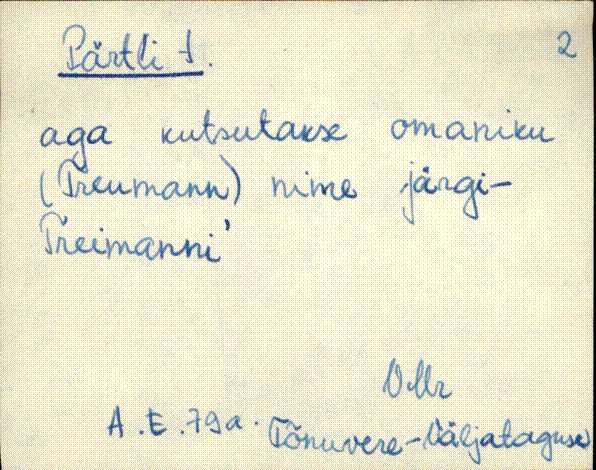 Pärtli t. 2
aga kutsutakse omaniku
(Treumann) nime järgi-
Treimanni'
VMr
A.E. 79a. Tõnuvere-Väljataguse